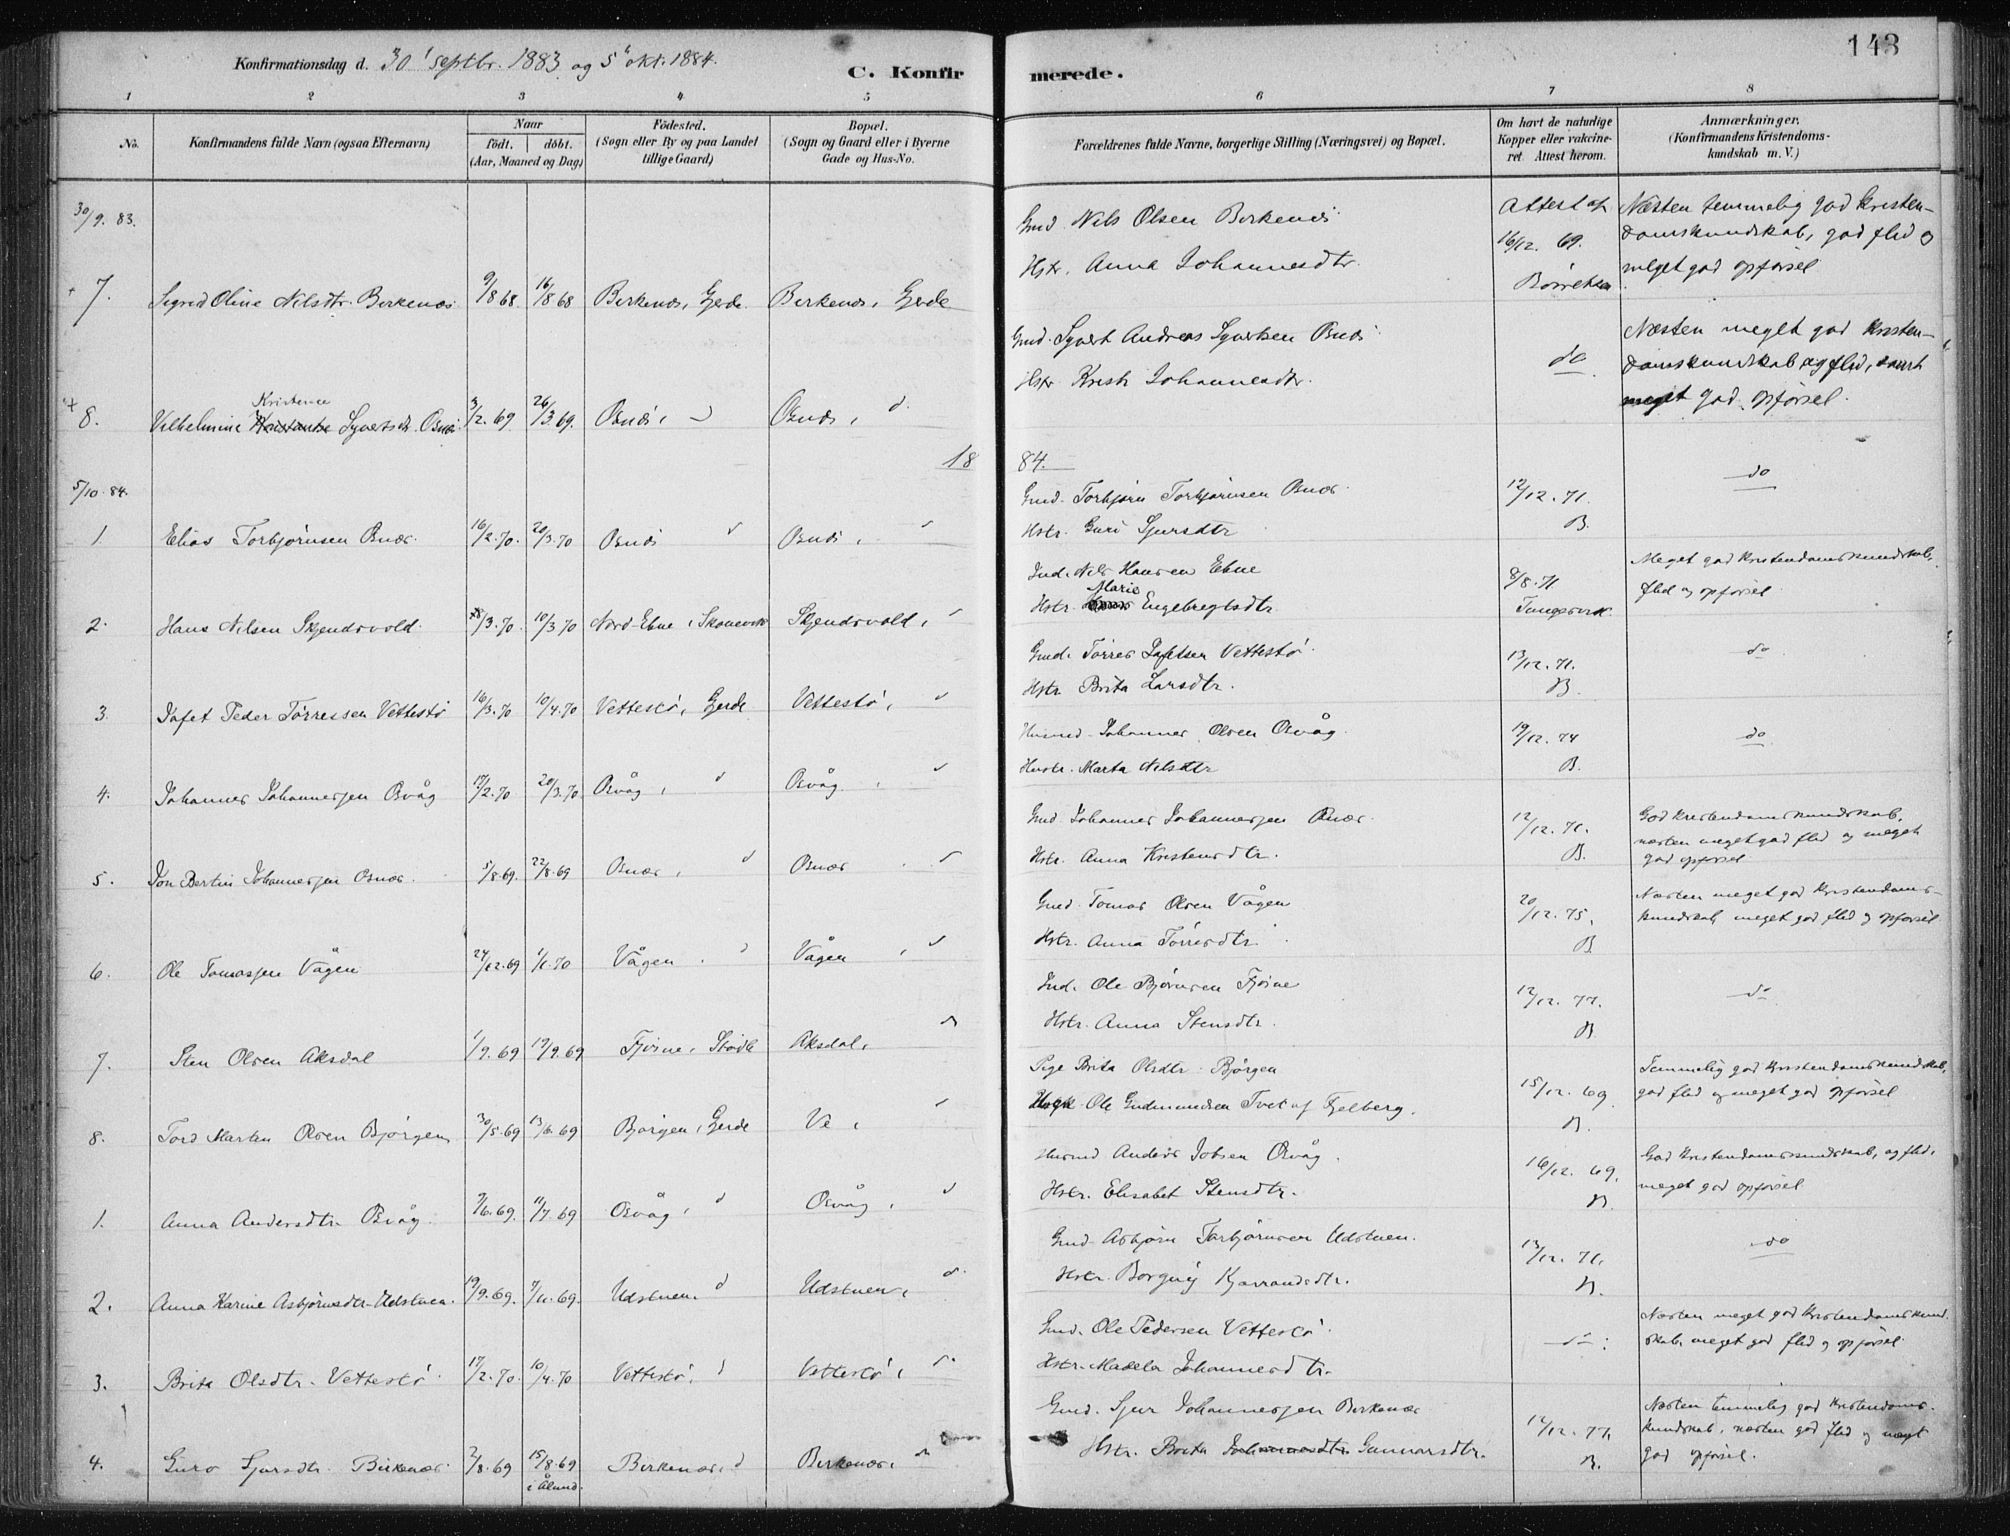 143
Konfirmationsdag d. 30' septbr. 1883 og 5' okt. 1884.
C. Konfirmerede.
1 2 3 4 5 6 7 8
No.
Konfirmandens fulde Navn (ogsaa Efternavn)
Naar
født. døbt.
(Aar, Maaned og Dag)
Fødested.
(Sogn eller By og paa Landet
tillige Gaard)
Bopæl.
(Sogn og Gaard eller i Byerne
Gade og Hus-No.
Forældrenes fulde Navne, borgerlige Stilling (Næringsvei) og Bopæl.
Om havt de naturlige
Kopper eller vakcine-
ret. Attest herom.
Anmærkninger.
(Konfirmandens Kristendoms-
kundskab m. V.)
30/9. 83.
7. Sigrid Oline Nilsdtr. Birkenæs 9/8 68 16/8 68 Birkenæs, Gjerde Birkenæs, Gjerde
Gmd. Nils Olsen Birkenæs
Hstr. Anna Johannesdtr.
Attest af
16/12. 69.
Næsten temmelig god Kristen-
domskundskab, god flid og
meget god opførsel
8. Vilhelmine Kristence Syvertsdtr. Osnæs 3/2. 69 26/3. 69. Osnæs, d Osnæs, d.
Gmd. Syvert Andreas Syvertsen Osnæs
Hstr. Kristi Johannesdtr.
do
Næsten meget god Kristen-
domskundskab og flid, samt
meget god opførsel.
18 84.
5/10. 84.
1. Elias Torbjørnsen Osnæs. 16/2. 70. 20/3. 70 Osnæs d Osnæs, d
Gmd. Torbjørn Torbjørnsen Osnæs.
Hstr. Guri Sjursdtr
12/12. 71.
B.
do
2. Hans Nilsen Skjendsvold. 8/3. 70. 10/3 70 Nord-Ebne, Skonevik Skjendsvold, d
Ind. Nils Hansen Ebne
Hstr. Marie Engebregtsdtr.
8/8. 71
Meget god Kristendomskundskab,
flid og opførsel
3. Jafet Peder Tørressen Vettestø 16/3. 70 10/4. 70 Vettestø, Gjerde Vettestø, d
Gmd. Tørres Jafetsen Vettestø
Hstr. Brita Larsdtr.
13/12. 71.
B.
do
4. Johannes Johannessen Osvåg 17/2. 70 20/3. 70 Osvåg, d Osvåg, d
Husmd. Johannes Olsen Osvåg.
Hustr. Marta Nilsdtr
19/12. 74
B.
do
5. Jon Bertin Johannessen Osnæs. 5/8. 69. 22/8. 69 Osnæs, d Osnæs d
Gmd. Johannes Johannessen Osnæs.
Hstr. Anna Kristensdtr.
12/12. 71.
B.
God Kristendomskundskab,
næsten meget god flid og meget
god opførsel
6. Ole Tomassen Vågen 24/12. 69 1/1. 70 Vågen. d Vågen, d
Gmd. Tomas Olsen Vågen
Hstr. Anna Tørresdtr
20/12. 75.
B
Næsten meget god Kristendoms-
kundskab, meget god flid og opførsel
7. Sten Olsen Aksdal 1/9. 69 19/9. 69 Fjøsne, Stødle Aksdal, d
Ind. Ole Bjørnsen Fjøsne
Hstr. Anna Stensdtr.
12/12. 77.
B
do
8. Tord Martin Olsen Bjørgen 30/5. 69 13/6. 69 Bjørgen, Gjerde Ve, d
Pige Brita Olsdtr. Bjørgen
Ole Gudmundsen Tvet af Fjelberg.
15/12. 69.
B.
Temmelig god Kristendomskundskab,
god flid og meget god opførsel
1. Anna Andersdtr. Osvåg /6. 69. 11/7. 69 Osvåg, d Osvåg, d
Husmd Anders Jobsen Osvåg.
Hstr. Elisabet Stensdtr.
16/12. 69.
B.
God Kristendomskundskab, og flid,
meget god opførsel
2. Anna Karine Asbjørnsdtr. Udstuen. 19/9. 69. 7/11. 69. Udstuen, d Udstuen, d.
Gmd. Asbjørn Torbjørnsen Udstuen.
Hstr. Borgny Kjærrandsdtr.
13/12. 71.
B.
do
3. Brita Olsdtr. Vettestø 17/2. 70. 10/4. 70 Vettestø, d Vettestø, d.
Gmd. Ole Pedersen Vettestø
Hstr. Madela Johannesdtr.
do.
Næsten meget god Kristendomskund-
skab, meget god flid og opførsel
4. Guro Sjursdtr. Birkenæs 2/8. 69 15/8. 69 i Ølund. Birkenæs, d Birkenæs, d
Gmd. Sjur Johannessen Birkenæs
Hstr. Brita Johannesdtr. Gunnarsdtr.
12/12. 77.
B.
Næsten temmelig god Kristendoms-
kundskab, næsten god flid og meget
god opførsel.